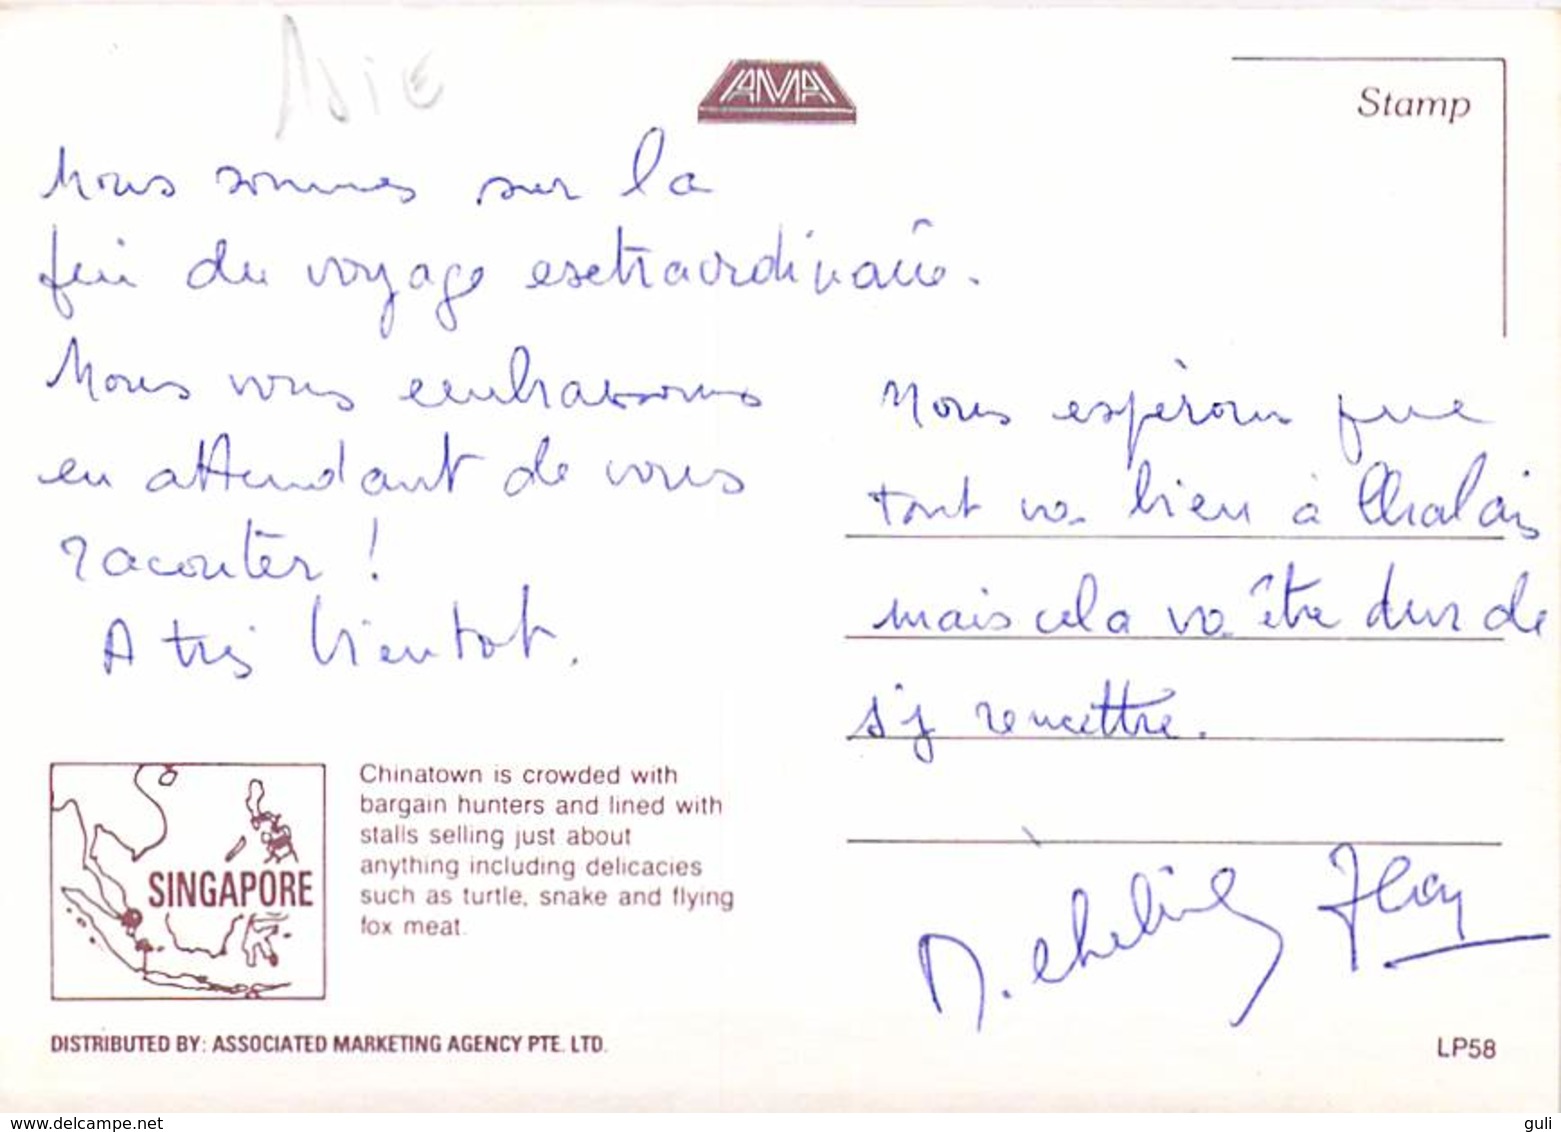 Asie
AMA
Stamp
Nous sommes sur la
fin du voyage extraordinaire.
Nous vous embrassons
en attendant de vous
raconter !
A très bientot.
Nous espérons que
tout va bien à Chalais
mais cela va être dur de
s'y remettre.
SINGAPORE
Chinatown is crowded with
bargain hunters and lined with
stalls selling just about
anything including delicacies
such as turtle, snake and flying
fox meat.
DISTRIBUTED BY: ASSOCIATED MARKETING AGENCY PTE. LTD.
LP58
www.delcampe.net
guli